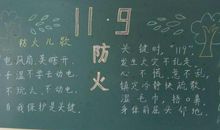 11·9
防火
防火儿歌
电风扇,莫瞎开,
千万不要去动电,
不玩火,不动电,
自我保护是关键。
关键时,"119",
发生火灾不乱走,
心不慌,意不乱,
镇定冷静快疏散,
湿毛巾,捂口鼻,
身体前屈头仰地,